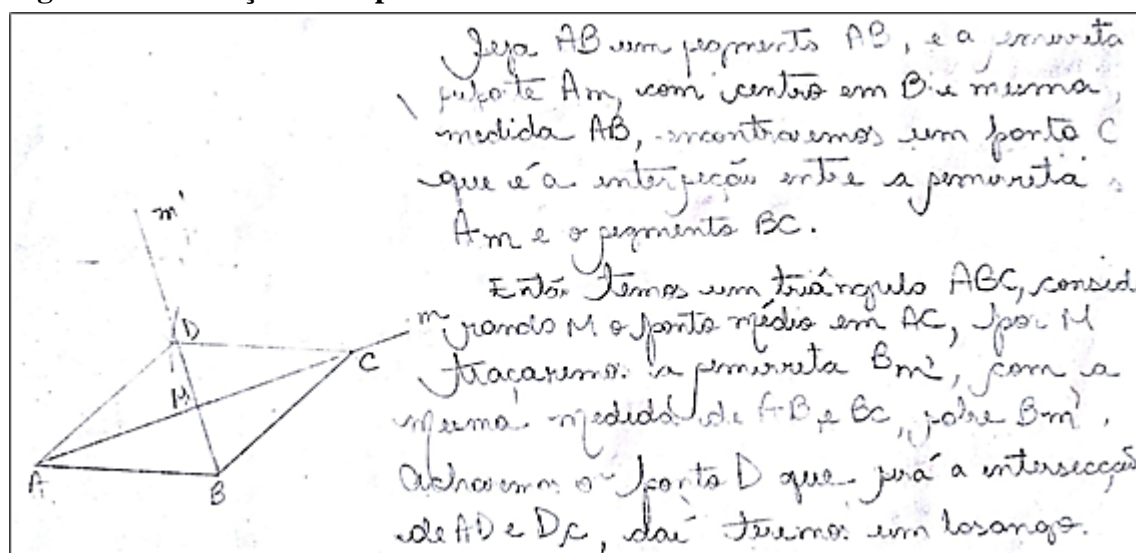 Seja AB um segmento AB, e a semirreta
suporte Am, com centro em B e mesma
medida AB, encontraremos um ponto C
que é a interseção entre a semirreta
Am e o segmento BC.
Então temos um triângulo ABC, consid
rando M o ponto médio em AC, por M
traçaremos a semirreta Bm', com a
mesma medida de AB e BC, sobre Bm',
acharemos o ponto D que será a intersecção
de AD e DC, daí teremos um losango.
m'
D
m
C
M
A
B